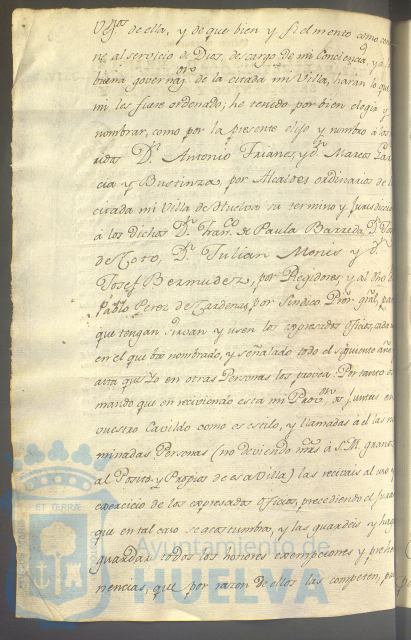 Vez.os de ella, y de que bien y fielmente como con
ne al servicio de Dios, descargo de mi Conciencia, y a la
buena governaz.on de la citada mi Villa, harán lo que
mi les fuere ordenado; he tenido por bien elegir y
nombrar, como por la presente elijo y nombro á los
D.n Antonio Trianes, y d.n Marcos Gar
cia y Bustinza, por Alcaldes ordinarios de la
citada mi Villa de Huelva su termino y jurisdiccion
á los dichos D.n Fran.co de Paula Barreda, D.n
de Toro, D.n Julian Monis y d.n
Josef Bermudez, por Regidores; y al dho
Pablo Perez de Cardenas, por Sindico Pror. gral, para
que tengan, sirvan y usen los expresados oficios, cada
en el que vá nombrado, y señalado todo el siguiente año
asta que Yo en otras Personas los provea. Por tanto os
mando que en reciviendo esta mi Provis.on os junteis en
vuestro Cavildo como es estilo, y llamadas á él las no
minadas Personas (no deviendo mrs. á S. M. granos
al Posito y Propios de esa Villa) las recivais al uso y
exercicio de los expresados Oficios, precediendo el juram
que en tal caso se acostumbra, y las guardeis y hag
guardar todos los honores exempciones y prehe
minencias, que por razon de ellos las competen, p
ET TERRAE
Ayuntamiento de
HUELVA